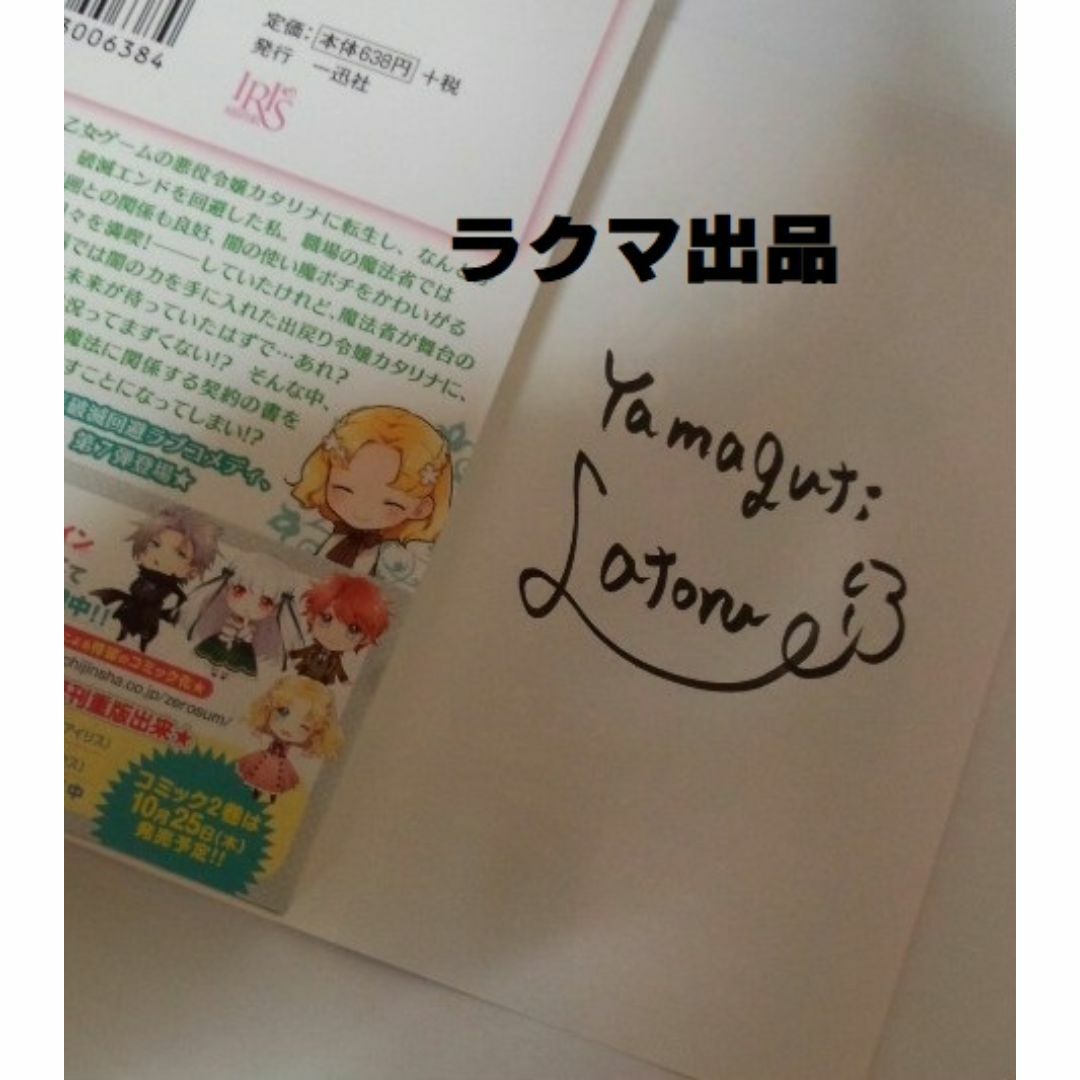 3006384
定価：本体638円＋税
発行 一迅社
IRIS
乙女ゲームの悪役令嬢カタリナに転生し、なんと
破滅エンドを回避した私。職場の魔法省では
囲との関係も良好、闇の使い魔ポチをかわいがる
々を満喫!――していたけれど、魔法省が舞台の
では闇の力を手に入れた出戻り令嬢カタリナに、
未来が待っていたはずで…あれ?
況ってまずくない!? そんな中、
魔法に関係する契約の書を
すことになってしまい!?
破滅回避ラブコメディ、
第7弾登場★
ラクマ出品
Yamaguti
Satoru
イン
て
中!!
による待望のコミック化★
ichijinsha.co.jp/zerosum/
刊重版出来★
アイリス)
ス)
中
コミック2巻は
10月25日(木)
発売予定!!